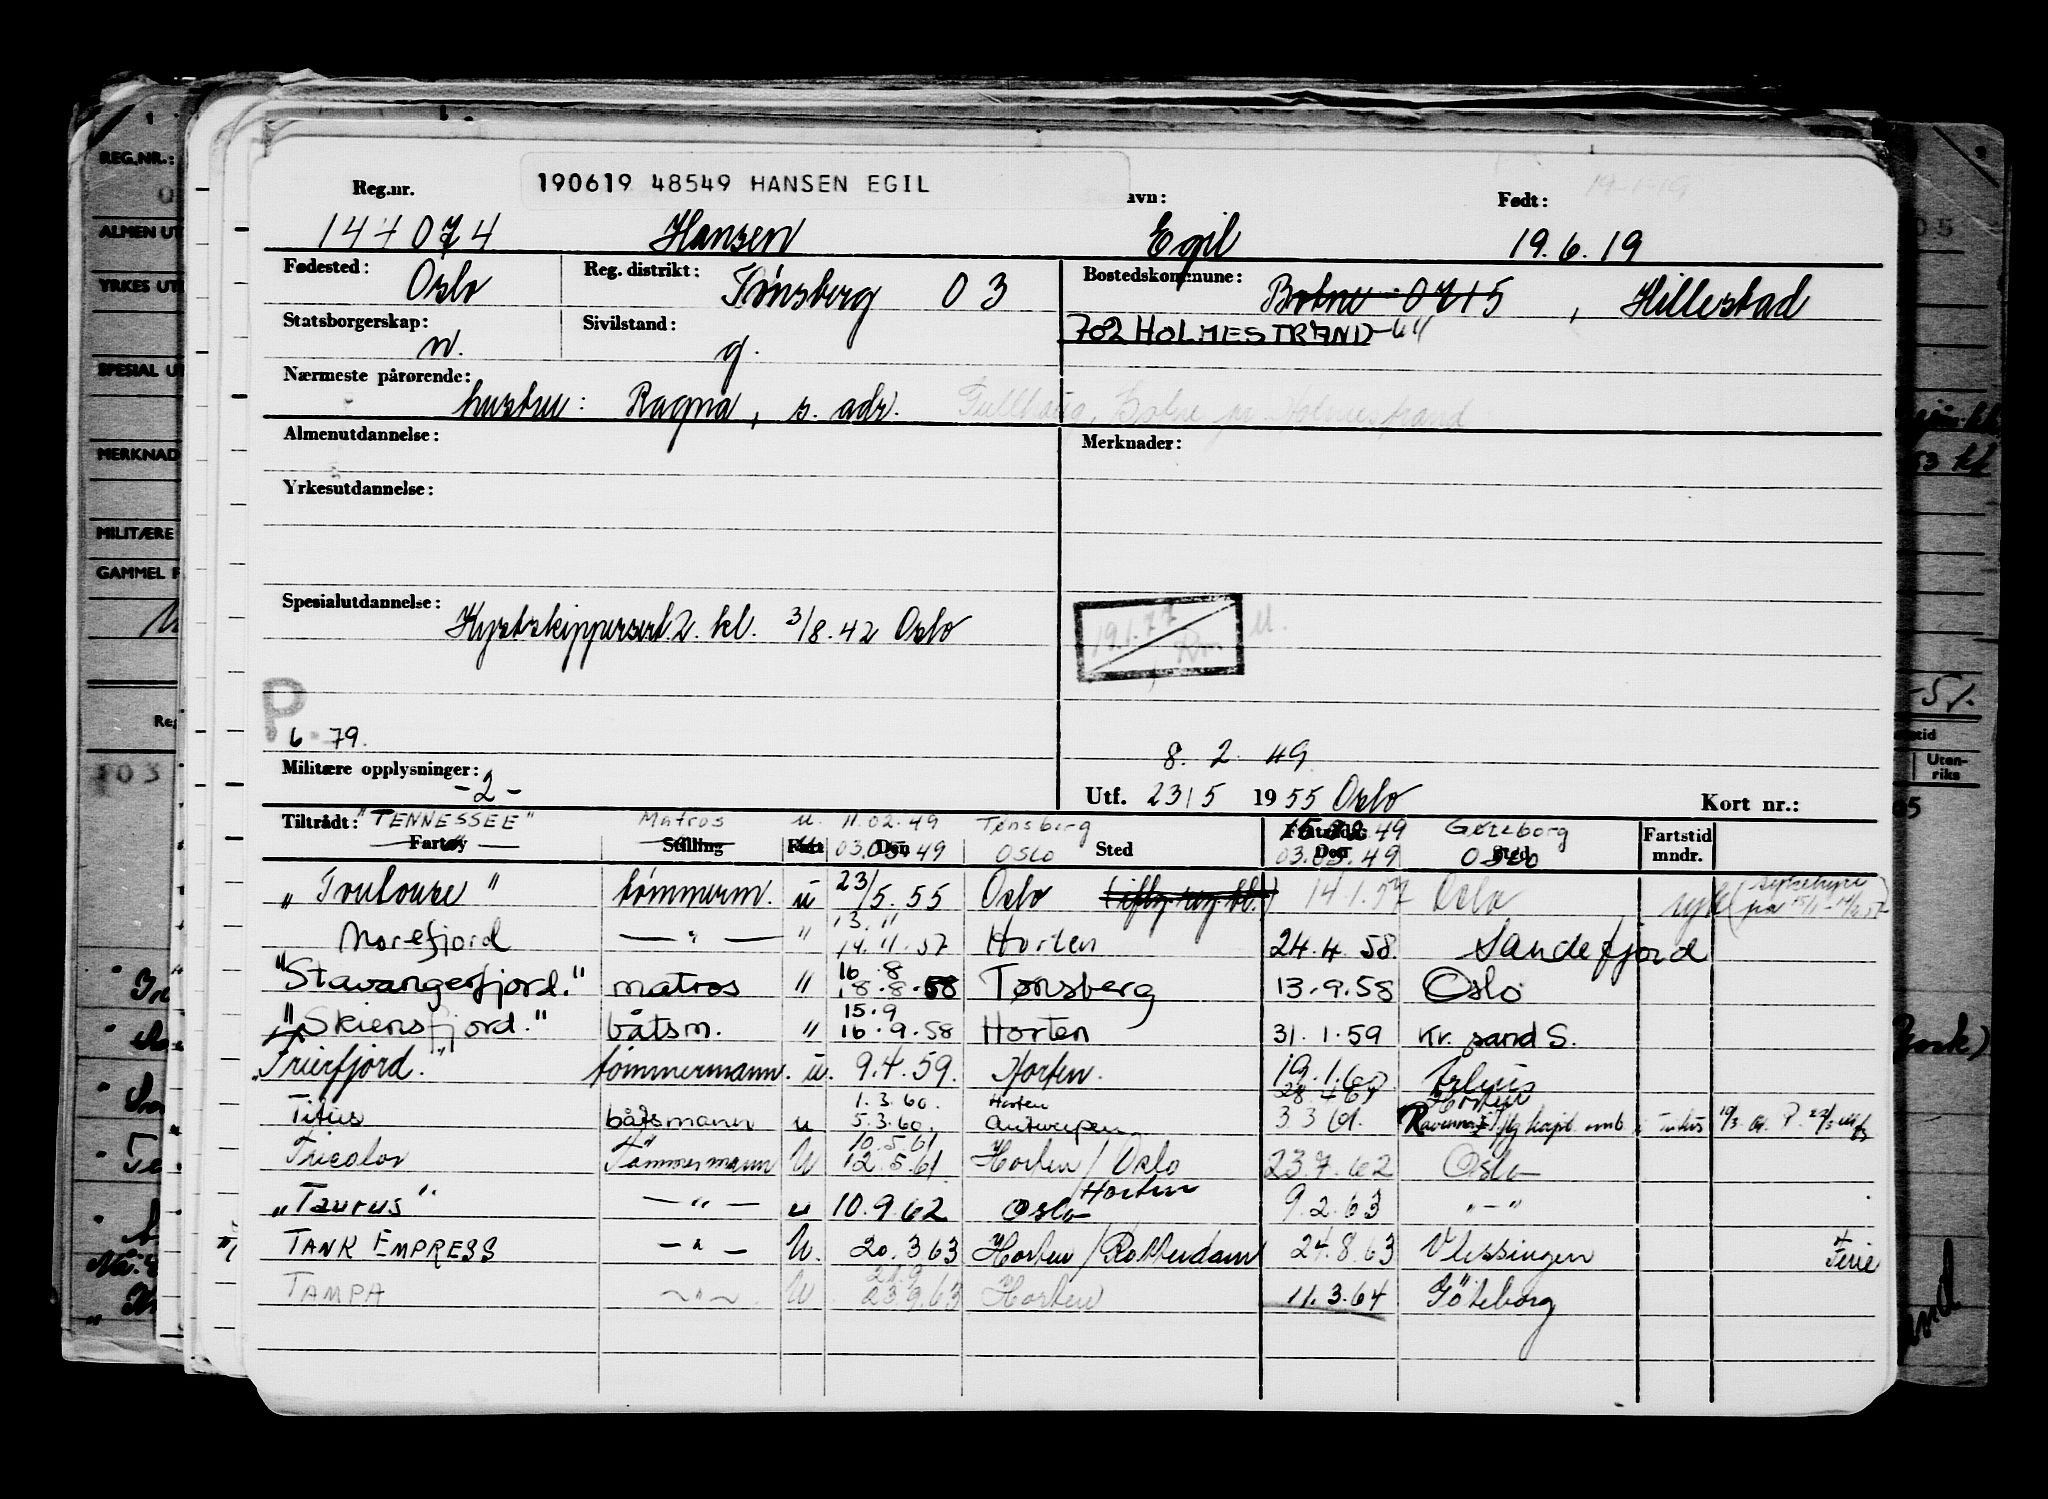 Reg.nr.
190619 48549 HANSEN EGIL
avn:
Født:
19-1-19
144074 Hansen Egil 19.6.19
Fødested: Oslo
Reg. distrikt: Tønsberg 03
Bostedskommune: Botne 0715, Hillestad
Statsborgerskap: n.
Sivilstand: g.
702 HOLMESTRAND-64
Nærmeste pårørende:
hustru: Ragna, s. adr. Gullhaug, Botne pr Holmestrand
Almenutdannelse:
Merknader:
Yrkesutdannelse:
Spesialutdannelse:
Kystskippersert. 2. kl. 3/8.42 Oslo
19.1.77
P
6 79.
8. 2. 49.
Militære opplysninger:
-2-
Utf. 23/5 1955 Oslo
Kort nr.:
Tiltrådt: "TENNESSEE" Matros u. 11.02.49 Tønsberg 49 Göteborg
Fartøy Stilling Fart Den Sted Fratrådt: Den Sted Fartstid mndr.
03.05.49 OSLO 03.05.49 OSLO
"Toulouse" tømmerm. u 23/5.55 Oslo 14.1.57 Oslo
13.11
Norefjord — " — " 14.11.57 Horten 24.4.58. Sandefjord
16.8
"Stavangerfjord." matros " 18.8.58 Tønsberg 13.9.58 Oslo
15.9
"Skiensfjord." båtsm. " 16.9.58 Horten 31.1.59 Kr. sand S.
"Frierfjord." tømmermann. u. 9.4.59. Horten. 19.1.60
1.3.60. Horten Horten
Titus båtsmann u 5.3.60. Antwerpen 3 3 61. Ravenna
10.5.61
Tricolor Tömmermann U 12.5.61 Horten / Oslo 23.7.62 Oslo
Horten
"Taurus" — " — u 10.9.62 Oslo 9.2.63 " - "
TANK EMPRESS — " — U. 20.3.63 Horten / Rotterdam 24.8.63 Vlissingen Ferie
21.9
TAMPA — " — U 23.9.63 Horten 11.3.64 Göteborg
REG.NR.:
ALMEN UT
YRKES UT
SPESIAL U
MERKNAD
MILITÆRE
GAMMEL F
Reg
Utenriks